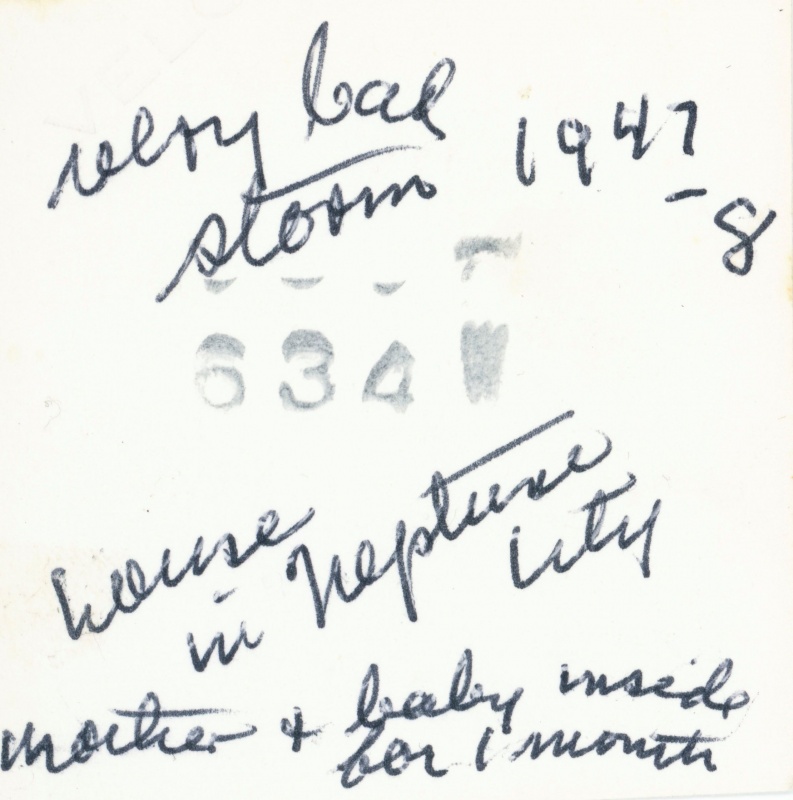 very bad 1947
storm -8
634
house
in Neptune
city
mother & baby inside
for 1 month